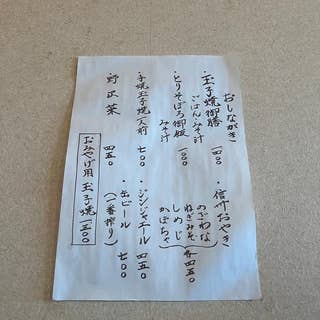 おしながき
・玉子焼御膳
ごはん・みそ汁
一、一〇〇
・とりそぼろ御飯
みそ汁
・玉子焼一人前
七〇〇
・野沢菜
四五〇
・信州おやき
のざわな
ねぎみそ
しめじ
かぼちゃ
各四五〇
・ジンジャエール
四五〇
・缶ビール
(一番搾り)
七〇〇
おみやげ用玉子焼